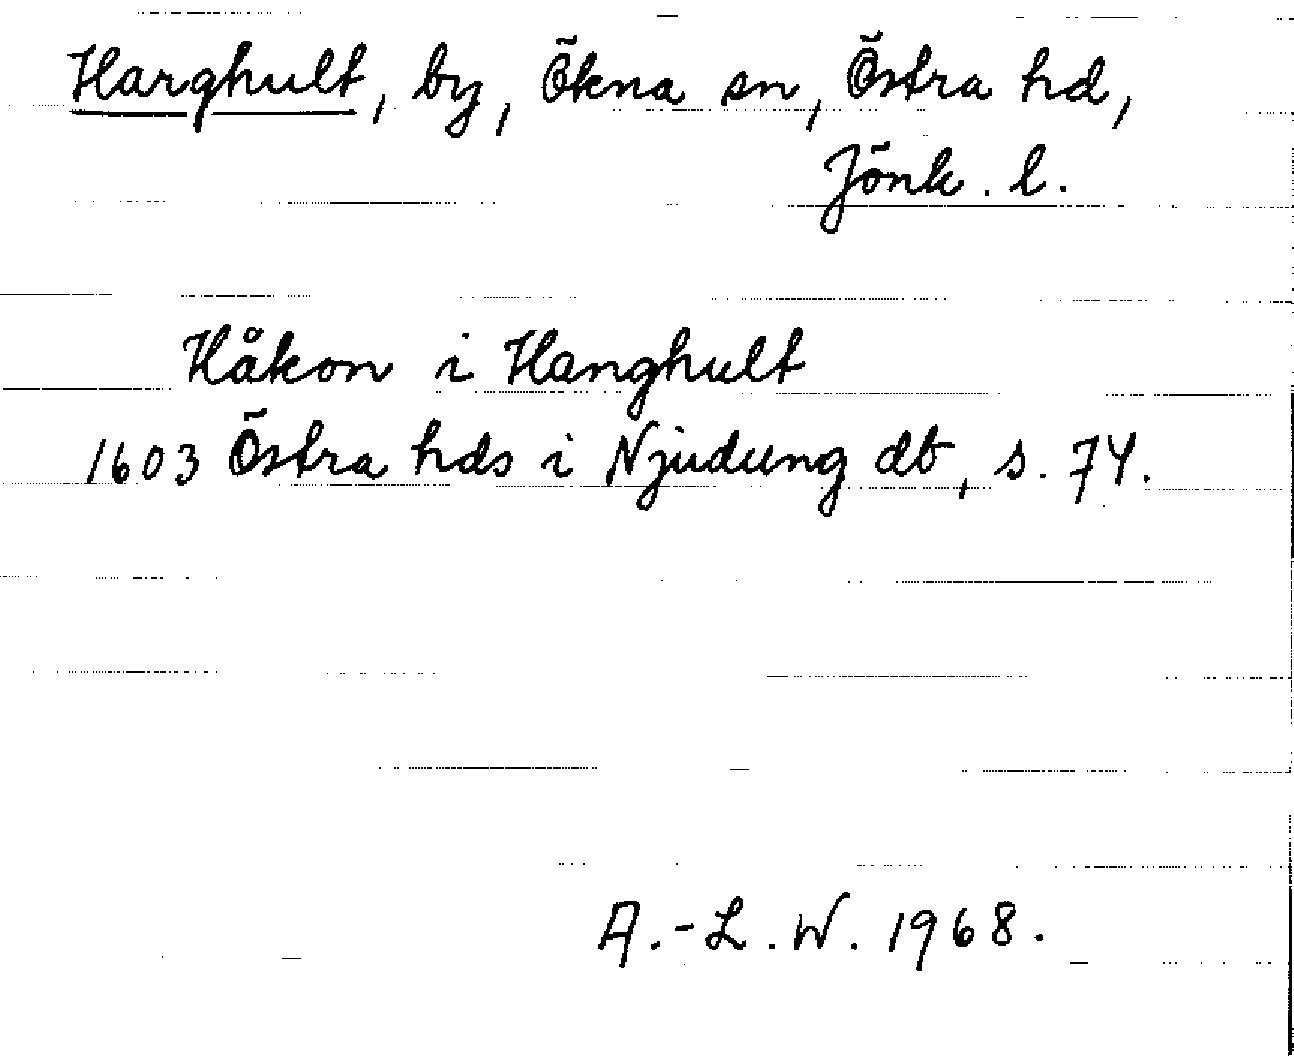 Harghult, by, Ökna sn, Östra hd,
Jönk. l.
Håkon i Hanghult
1603 Östra hds i Njudung db, s. 74.
A.-L. W. 1968.